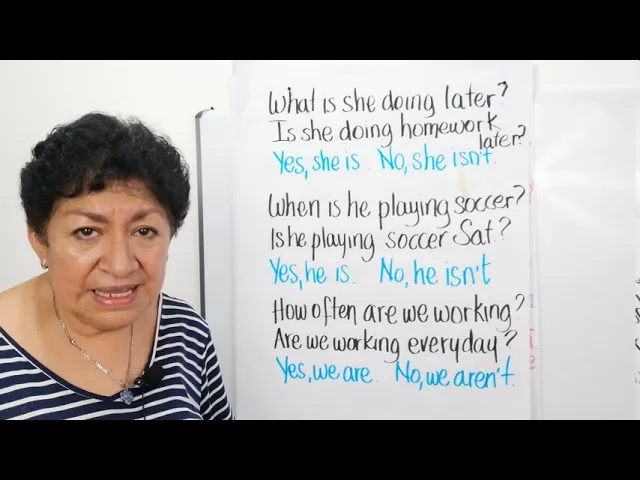 What is she doing later?
Is she doing homework
later?
Yes, she is. No, she isn't.
When is he playing soccer?
Is he playing soccer Sat.?
Yes, he is. No, he isn't
How often are we working?
Are we working everyday?
Yes, we are. No, we aren't.